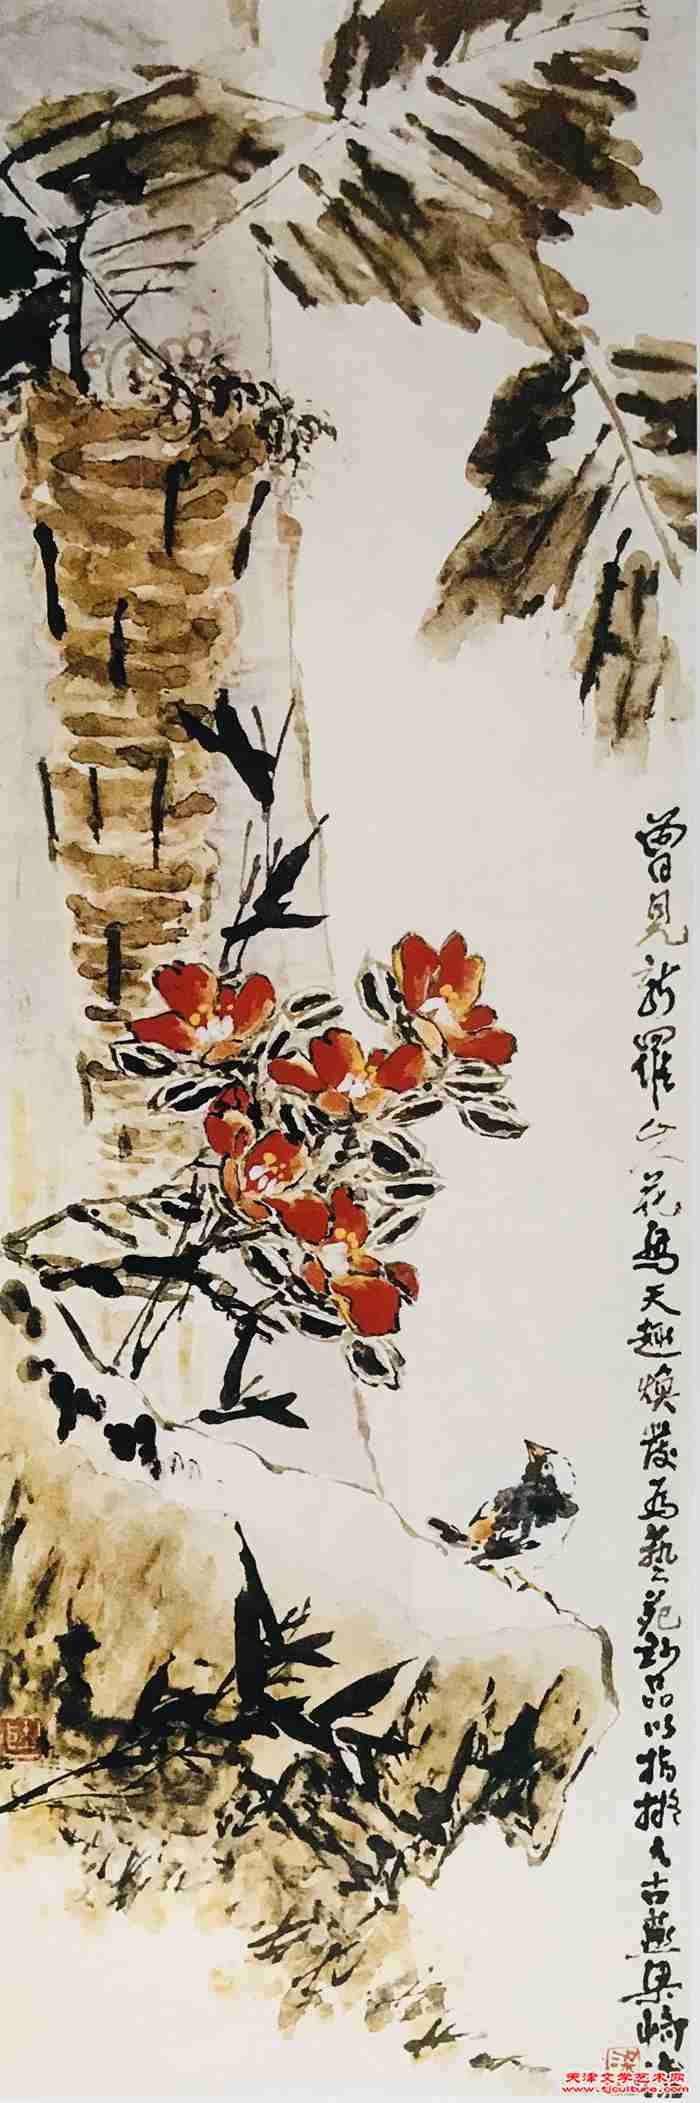 曾見新羅山人花鳥天趣焕發為藝苑妙品以指擬之古燕梁崎
天津文学艺术网
www.tjculture.com